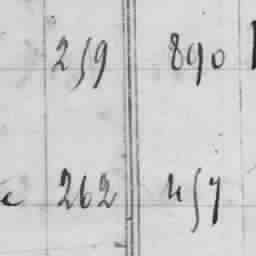 259 890
262 457